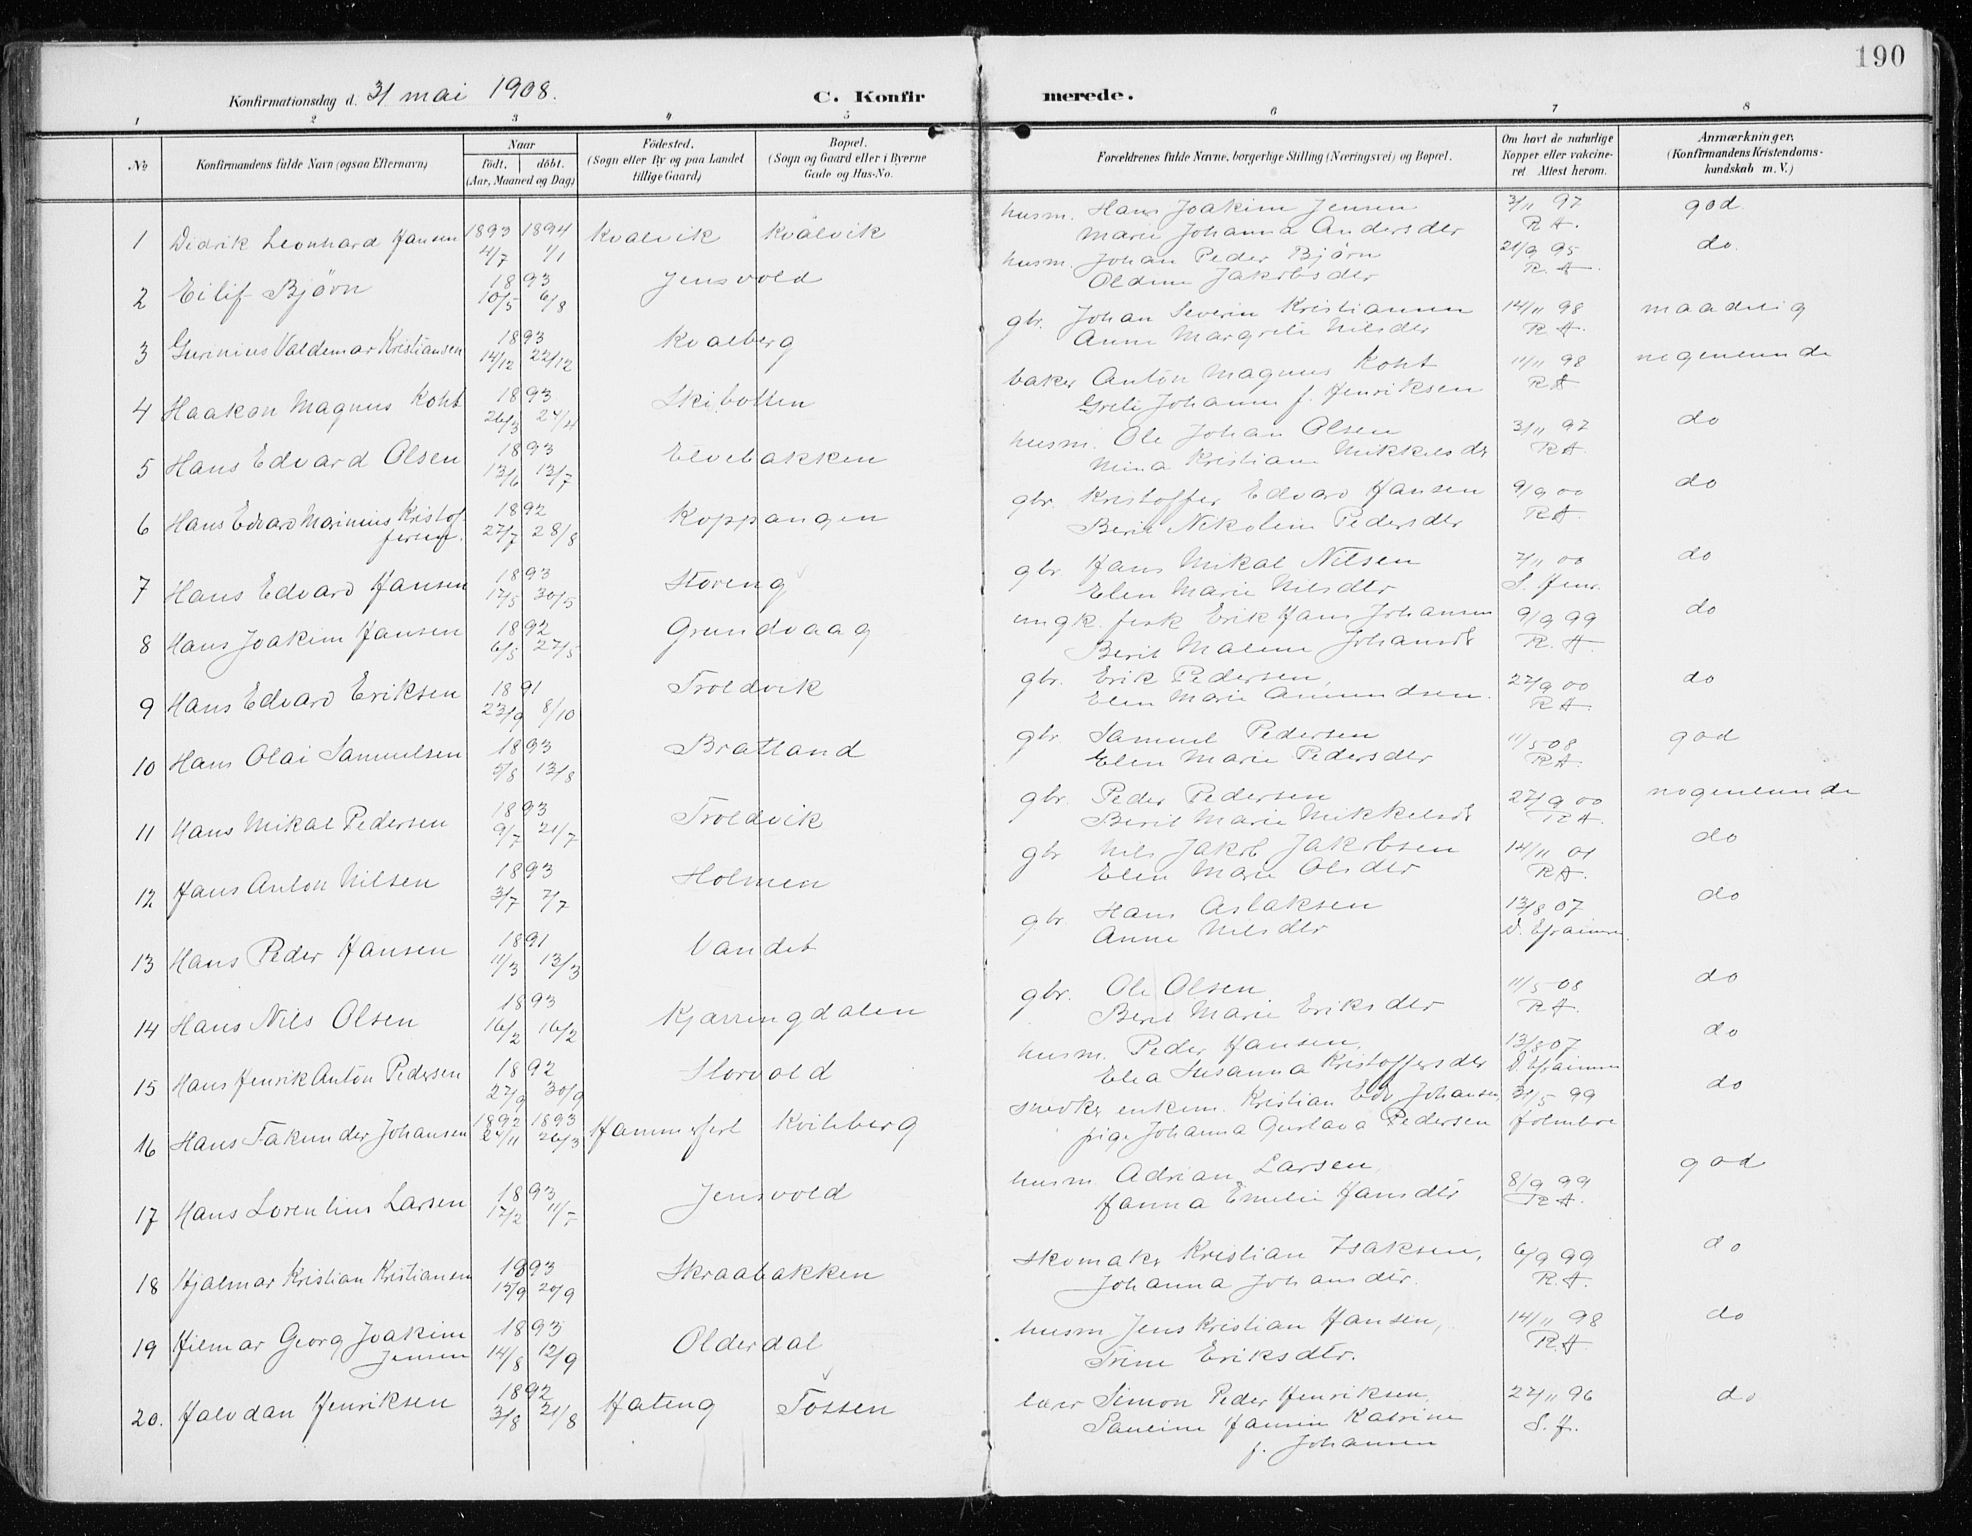 190
Konfirmationsdag d. 31 mai 1908. C. Konfirmerede.
1 2 3 4 5 6 7 8
No Konfirmandens fulde Navn (ogsaa Efternavn) Naar Födt. döbt. (Aar, Maaned og Dag) Födested. (Sogn eller By og paa Landet tillige Gaard) Bopæl. (Sogn og Gaard eller i Byerne Gade og Hus-No. Forældrenes fulde Navne, borgerlige Stilling (Næringsvei) og Bopæl. Om havt de naturlige Kopper eller vakcineret Attest herom. Anmærkninger. (Konfirmandens Kristendomskundskab m. V.)
1 Didrik Leonhard Hansen 1893 4/7 1894 1/1 Kvalvik Kvalvik husm. Hans Joakim Jensen 3/11 97 god
Marie Johanna Andersdtr R.A.
2 Eilif Bjørn 1893 10/5 6/8 Jensvold husm. Johan Peder Bjørn 21/9 95 do.
Oldine Jakobsdtr R.A.
3 Gurinius Valdemar Kristiansen 1893 14/12 22/12 Kvalberg gbr. Johan Severin Kristiansen 14/11 98 maadelig
Anne Margrete Nilsdtr R.A.
4 Haakon Magnus Koht 1893 26/3 24/4 Skibotten baker Anton Magnus Koht 11/11 98 nogenlunde
Grete Johanne f. Henriksen R.A.
5 Hans Edvard Olsen 1893 13/6 13/7 Elvebakken husm. Ole Johan Olsen 3/11 97 do
Nina Kristiane Mikkelsdtr R.A.
6 Hans Edvard Marinius Kristoffersen. 1892 27/7 28/8 Koppangen gbr. Kristoffer Edvard Hansen 9/9 00 do
Berit Nikoline Pedersdtr R.A.
7 Hans Edvard Hansen 1893 17/5 30/5 Storeng gbr Hans Mikal Nilsen 7/11 00 do
Elen Marie Nilsdtr S. Henr.
8 Hans Joakim Hansen 1892 6/5 27/5 Grundvaag ungk. fisk Erik Hans Johansen 9/9 99 do
Berit Malene Johansdtr R.A.
9 Hans Edvard Eriksen 1891 23/9 8/10 Troldvik gbr. Erik Pedersen, 27/9 00 do
Elen Marie Amundsen. R.A.
10 Hans Olai Samuelsen 1893 5/8 13/8 Bratland gbr. Samuel Pedersen 11/5 08 god
Elen Marie Pedersdtr R.A.
11 Hans Mikal Pedersen 1893 9/7 21/7 Troldvik gbr. Peder Pedersen 27/9 00 nogenlunde
Berit Marie Mikkelsdtr R.A.
12 Hans Anton Nilsen 1893 3/7 7/7 Holmen gbr Nils Jakob Jakobsen 14/11 01 do
Elen Marie Olsdtr R.A.
13 Hans Peder Hansen 1891 11/3 13/3 Vandet gbr. Hans Aslaksen 13/8 07 do
Anne Nilsdtr D. Efraimsen
14 Hans Nils Olsen 1893 16/2 16/2 Kjærringdalen gbr. Ole Olsen 11/5 08 do
Berit Marie Eriksdtr R.A.
15 Hans Henrik Anton Pedersen 1892 27/9 30/9 Storvold husm. Peder Hansen, 13/8 07 do
Elea Susanna Kristoffersdtr D. Efraimsen
16 Hans Fakunder Johansen 1892 24/11 1893 26/3 Hammerfest Kvileberg snedker enkem. Kristian Edv Johansen, 31/5 99 do
pige Johanna Gustava Pedersen Holmboe
17 Hans Lorentius Larsen 1893 17/2 11/7 Jensvold husm. Adrian Larsen, 8/9 99 god
Hanna Emelie Hansdtr R.A.
18 Hjalmar Kristian Kristiansen 1893 13/9 20/9 Skraabakken skomaker Kristian Isaksen, 6/9 99 do
Johanna Johansdtr. R.A.
19 Hilmar Georg Joakim Jensen 1893 14/8 12/9 Olderdal husm Jens Kristian Hansen, 14/11 98 do
Trine Eriksdtr. R.A.
20. Halvdan Henriksen 1892 3/8 21/8 Hateng Fossen lærer Simon Peder Henriksen, 27/11 96 do
Pauline Hannie Katrine S.H.
f. Johansen